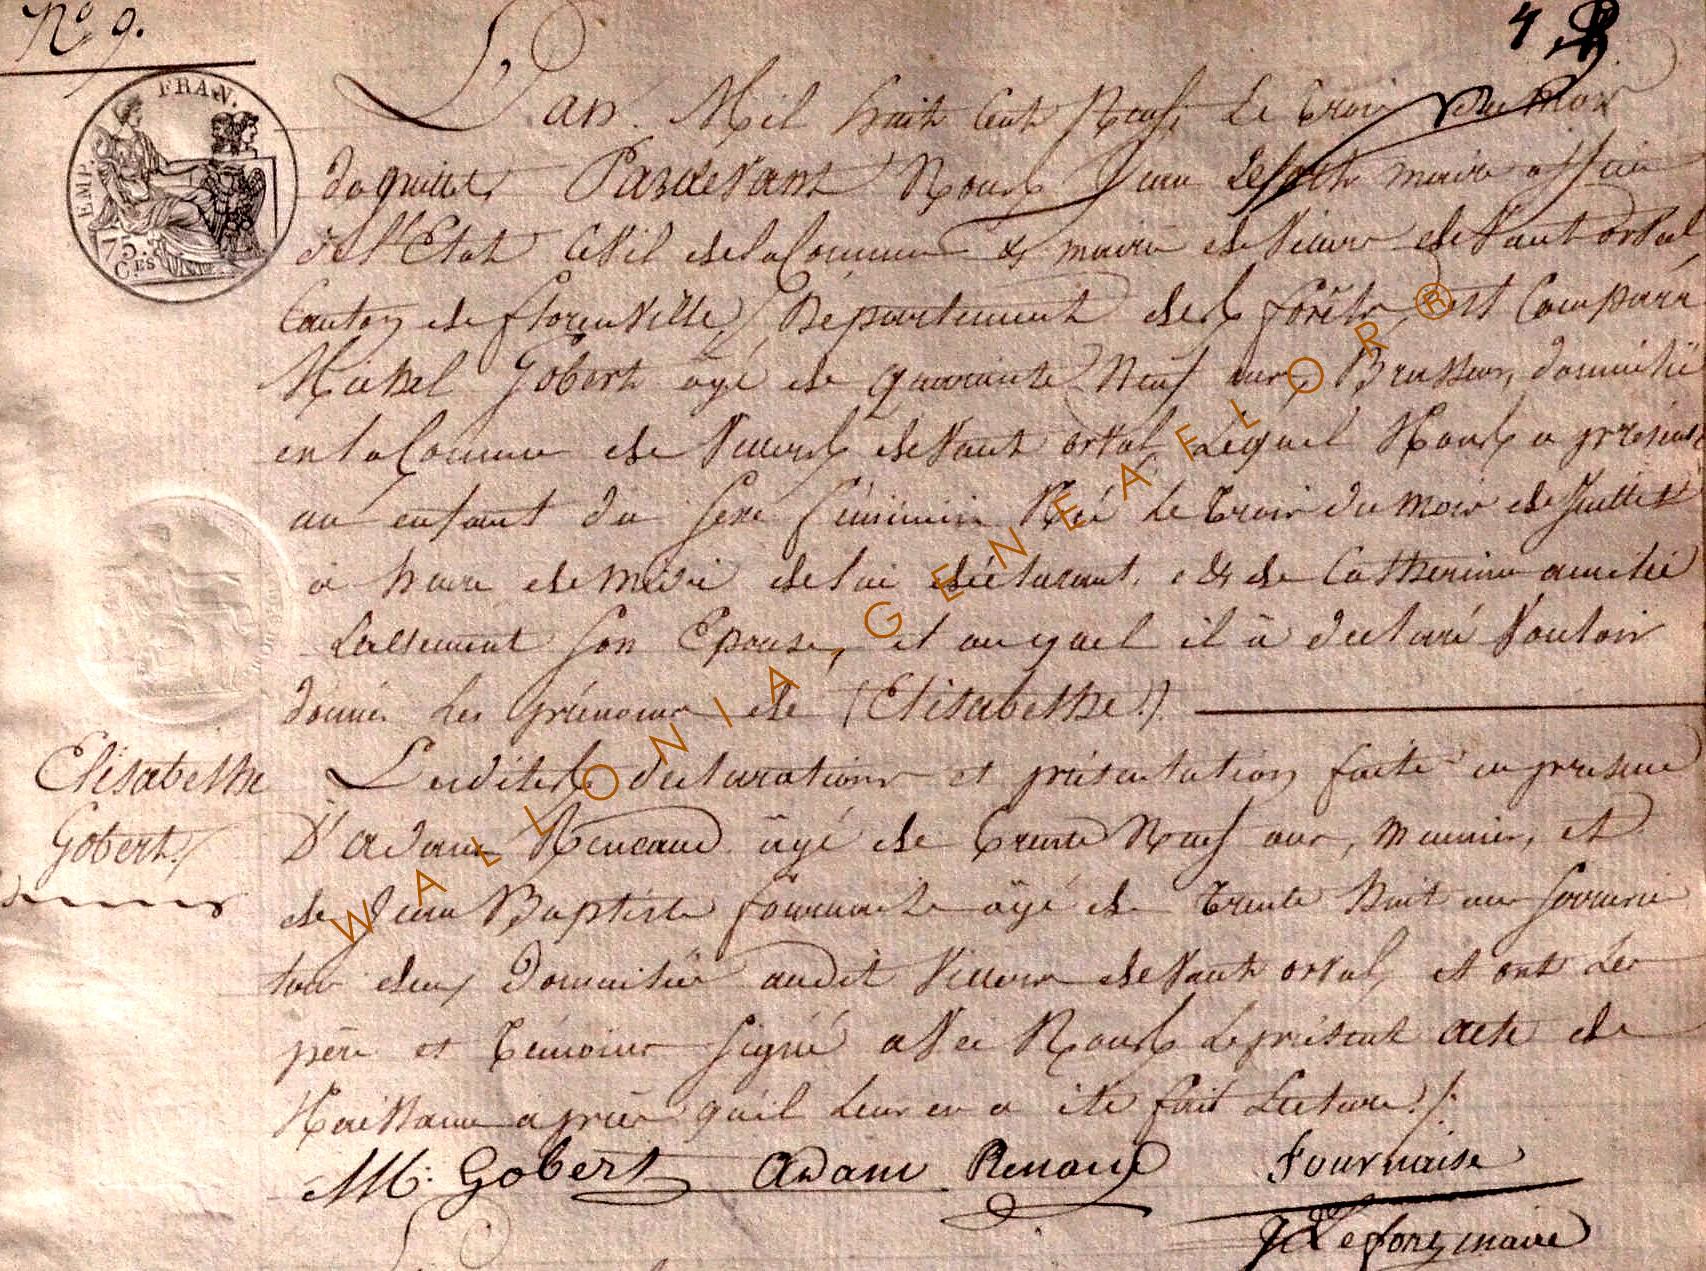 No 9.
4
FRAN.
EMP.
75.
CES
L'an Mil huit Cent Neuf, Le trois du mois
de juillet Pardevant Nous Jean Lefort maire officier
de l'Etat Civil de la Commune & mairie de Villers devant orval
Canton de florenville, Département des forêts, est Comparu
Michel Gobert âgé de quarante Neuf ans, Brasseur, domicilié
en la Commune de Villers devant orval Lequel Nous a présenté
un enfant du sexe féminin Née Le trois du mois de Juillet
a heure de midi de lui déclarant, et de Catherine amelie
Lallement son Epouse, et auquel il à declaré Vouloir
donner Les prénoms de (Elisabethe).
Elisabethe
Gobert
Lesdites declarations et présentation faite en presence
D'adam Reneaud âgé de trente Neuf ans, meunier, et
de Jean Baptiste fournaise âgé de trente huit ans
tous deux domicilié audit Villers devant orval, et ont Les
père et témoins signé avec Nous Le présent acte de
Naissance après qu'il Leur en a été fait Lecture ./.
M: Gobert adam Renaud fournaise
J Lefort maire
WALLONIA, GENEAFLOR®